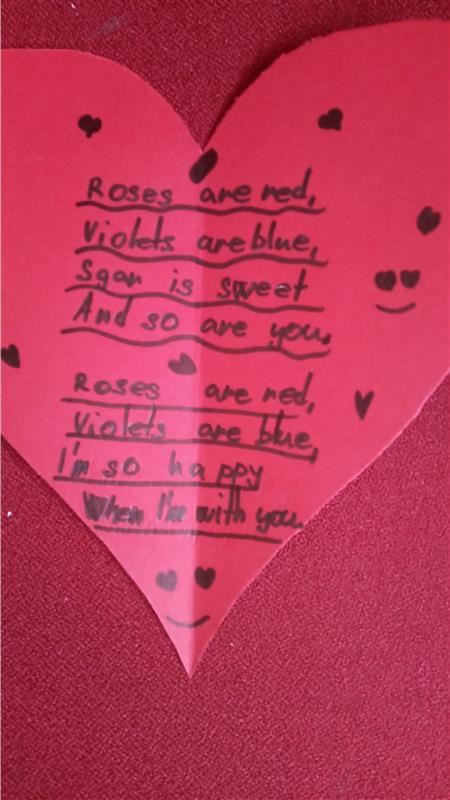 Roses are red,
Violets are blue,
Sgar is sweet
And so are you.
Roses are red,
Violets are blue,
I'm so happy
When I'm with you.